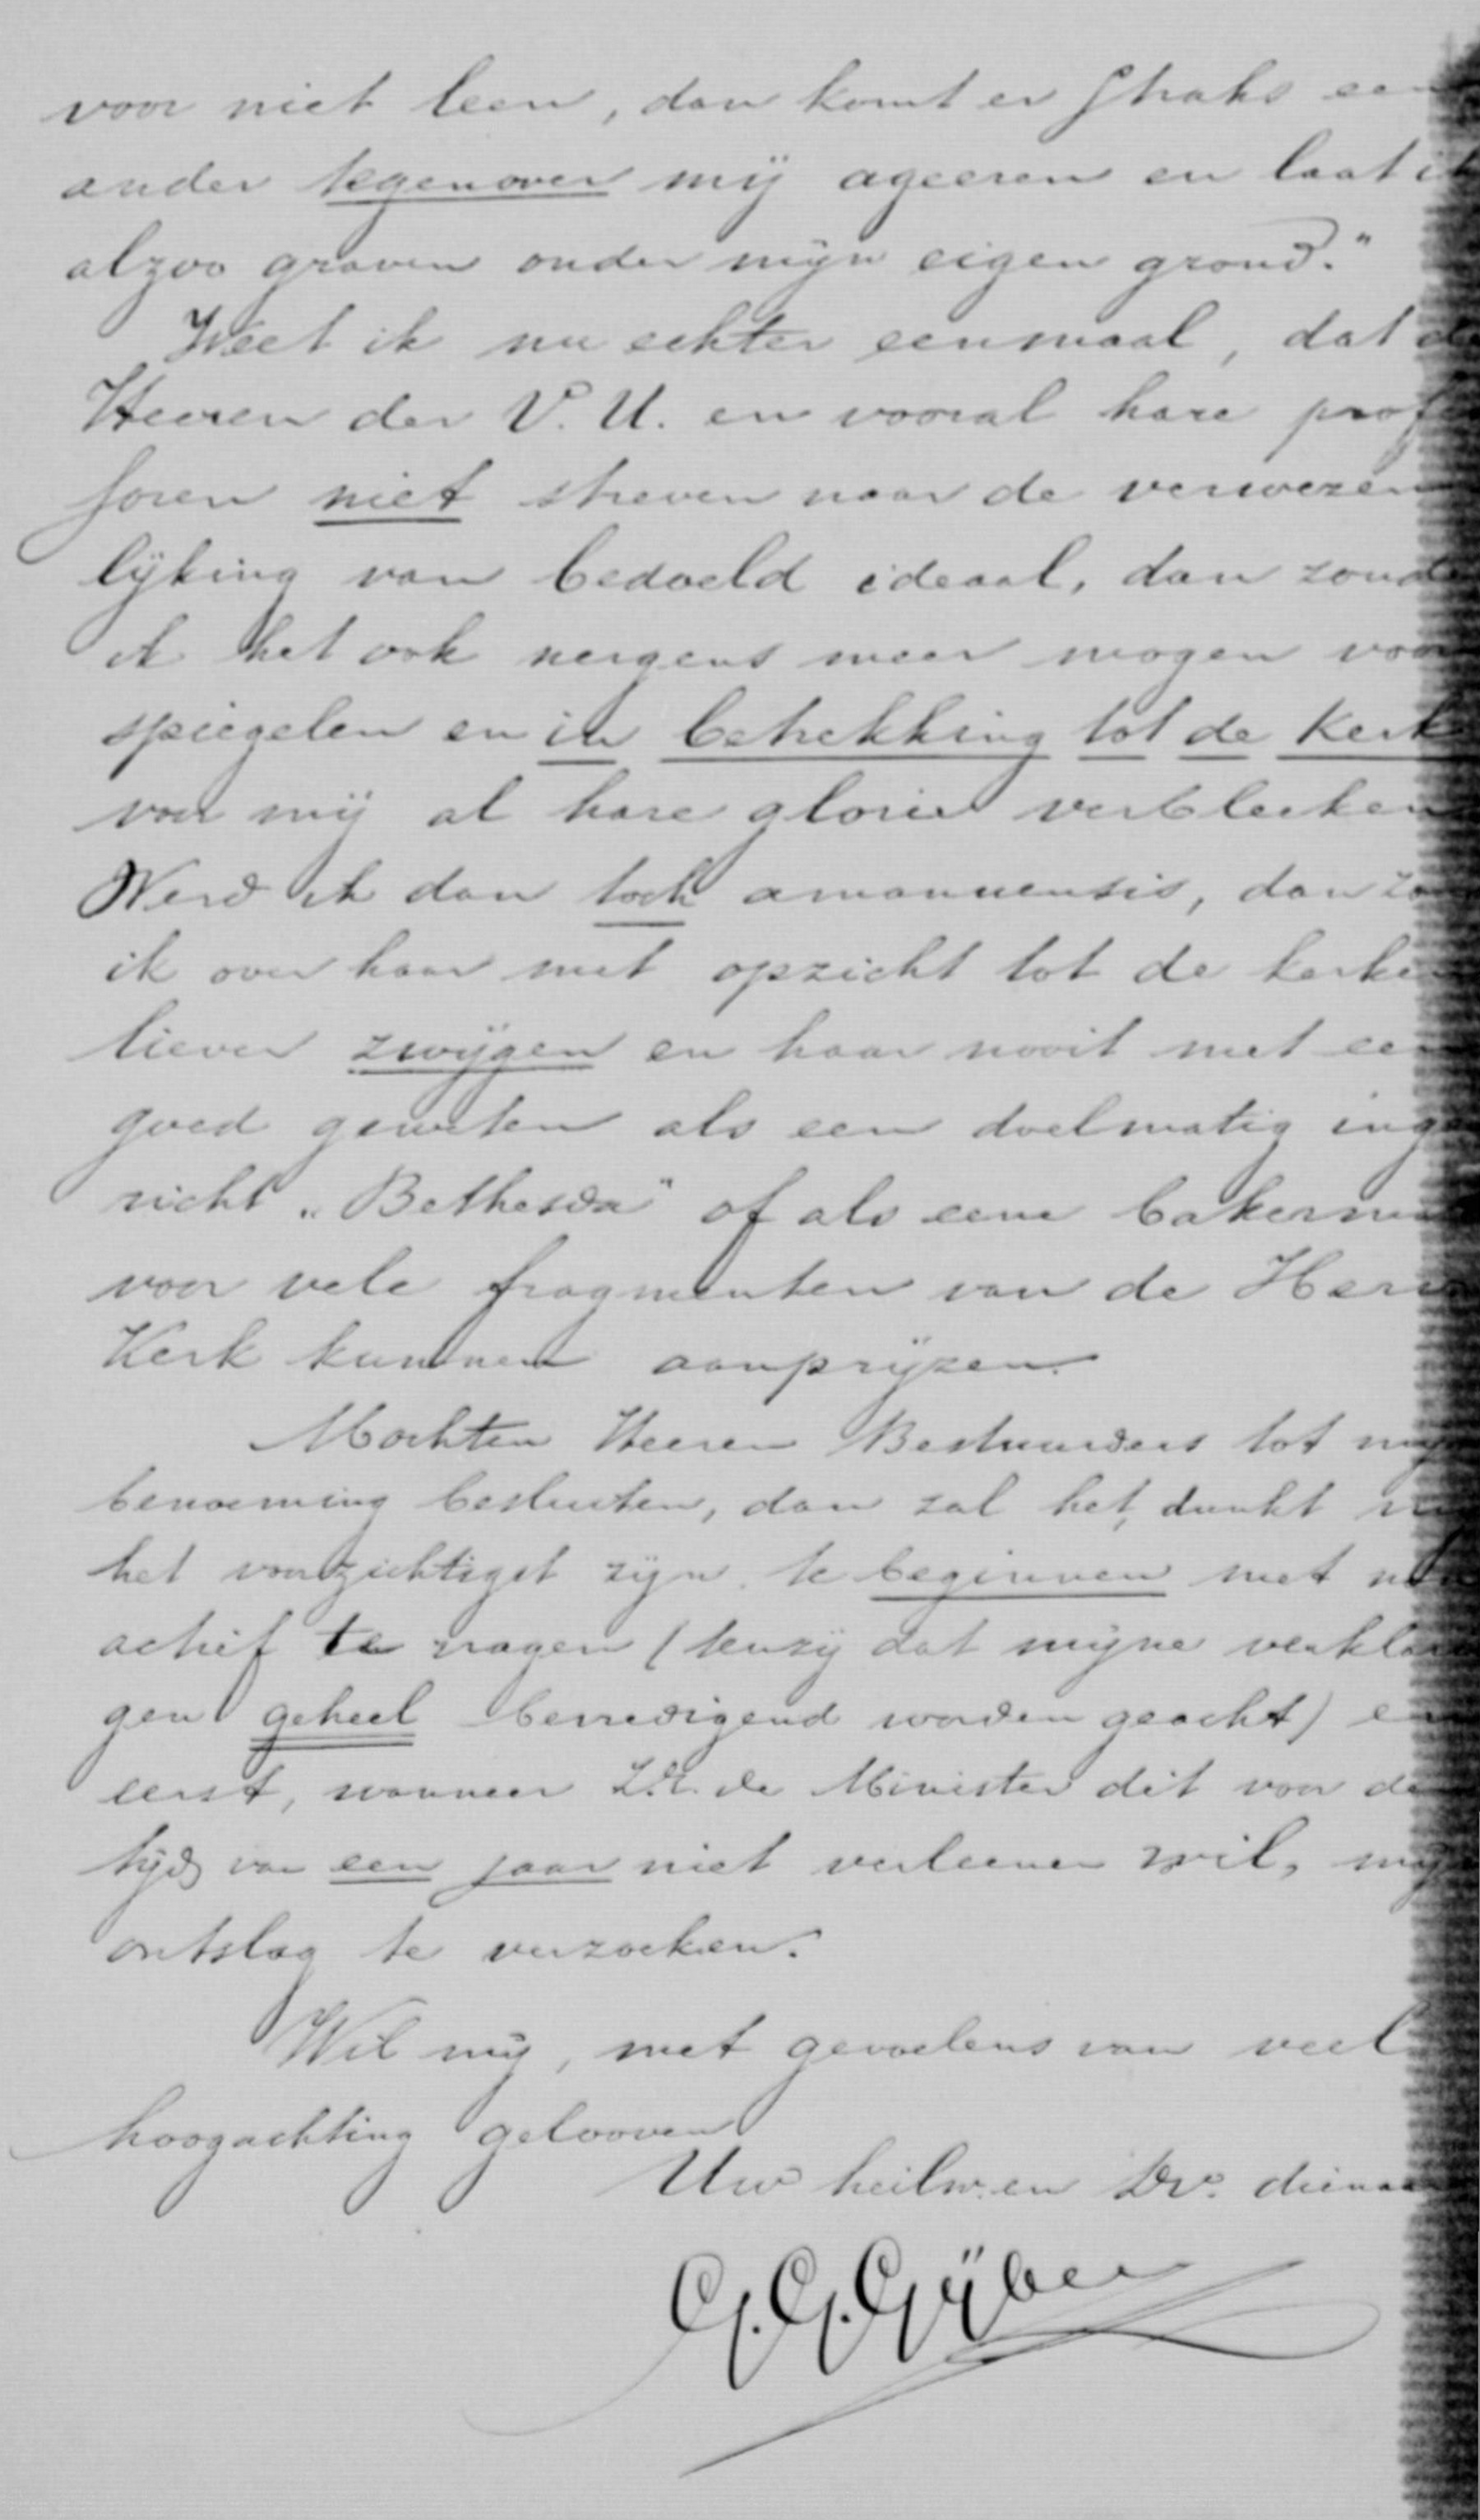 voor niet leen, dan komt er straks een
ander tegenover mij ageeren en laat ik
alzoo graven onder mijn eigen grond."
Weet ik nu echter eenmaal, dat de
Heeren der V. U. en vooral hare profes
soren niet streven naar de verwezen
lijking van bedoeld ideaal, dan zoude
ik het ook nergens meer mogen voor
spiegelen en in betrekking tot de Kerk
voor mij al hare glorie verbleeken
Werd ik dan toch amanuensis, dan zou
ik over haar met opzicht tot de kerken
liever zwijgen en haar nooit met een
goed geweten als een doelmatig inge
richt "Bethesda" of als eene bakermat
voor vele fragmenten van de Herv.
Kerk kunnen aanprijzen.
Mochten Heeren Bestuurders tot mijn
benoeming besluiten, dan zal het, dunkt mij
het voorzichtigst zijn, te beginnen met non
actief te vragen (tenzij dat mijne verklarin
gen geheel bevredigend worden geacht) en
eerst, wanneer Z.E. de Minister dit voor den
tijd van een jaar niet verleenen wil, mijn
ontslag te verzoeken.
Wil mij, met gevoelens van veel
hoogachting gelooven
Uw heilw. en Dv. dienaar
G. G. Gijben